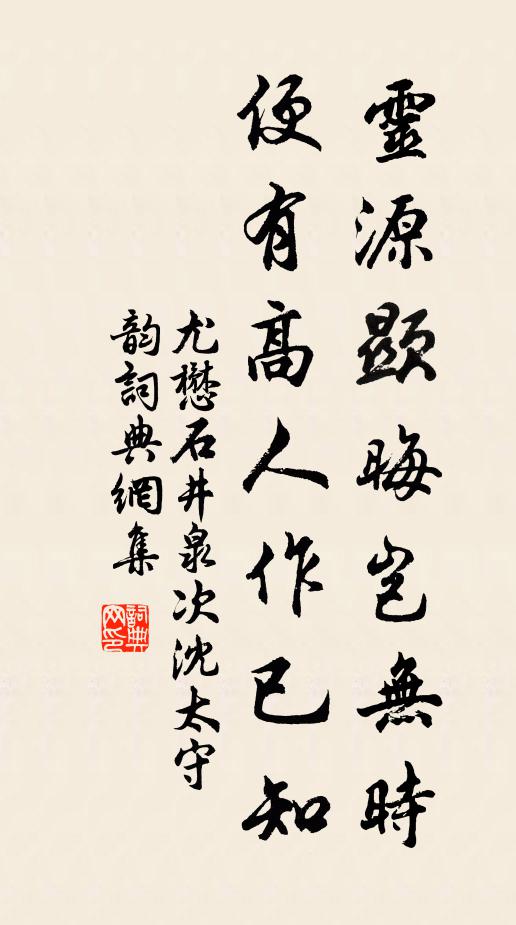 靈源顯晦岂無時
便有高人作已知
尤懋石井泉次沈太守
韵詞典網集
詞典網印